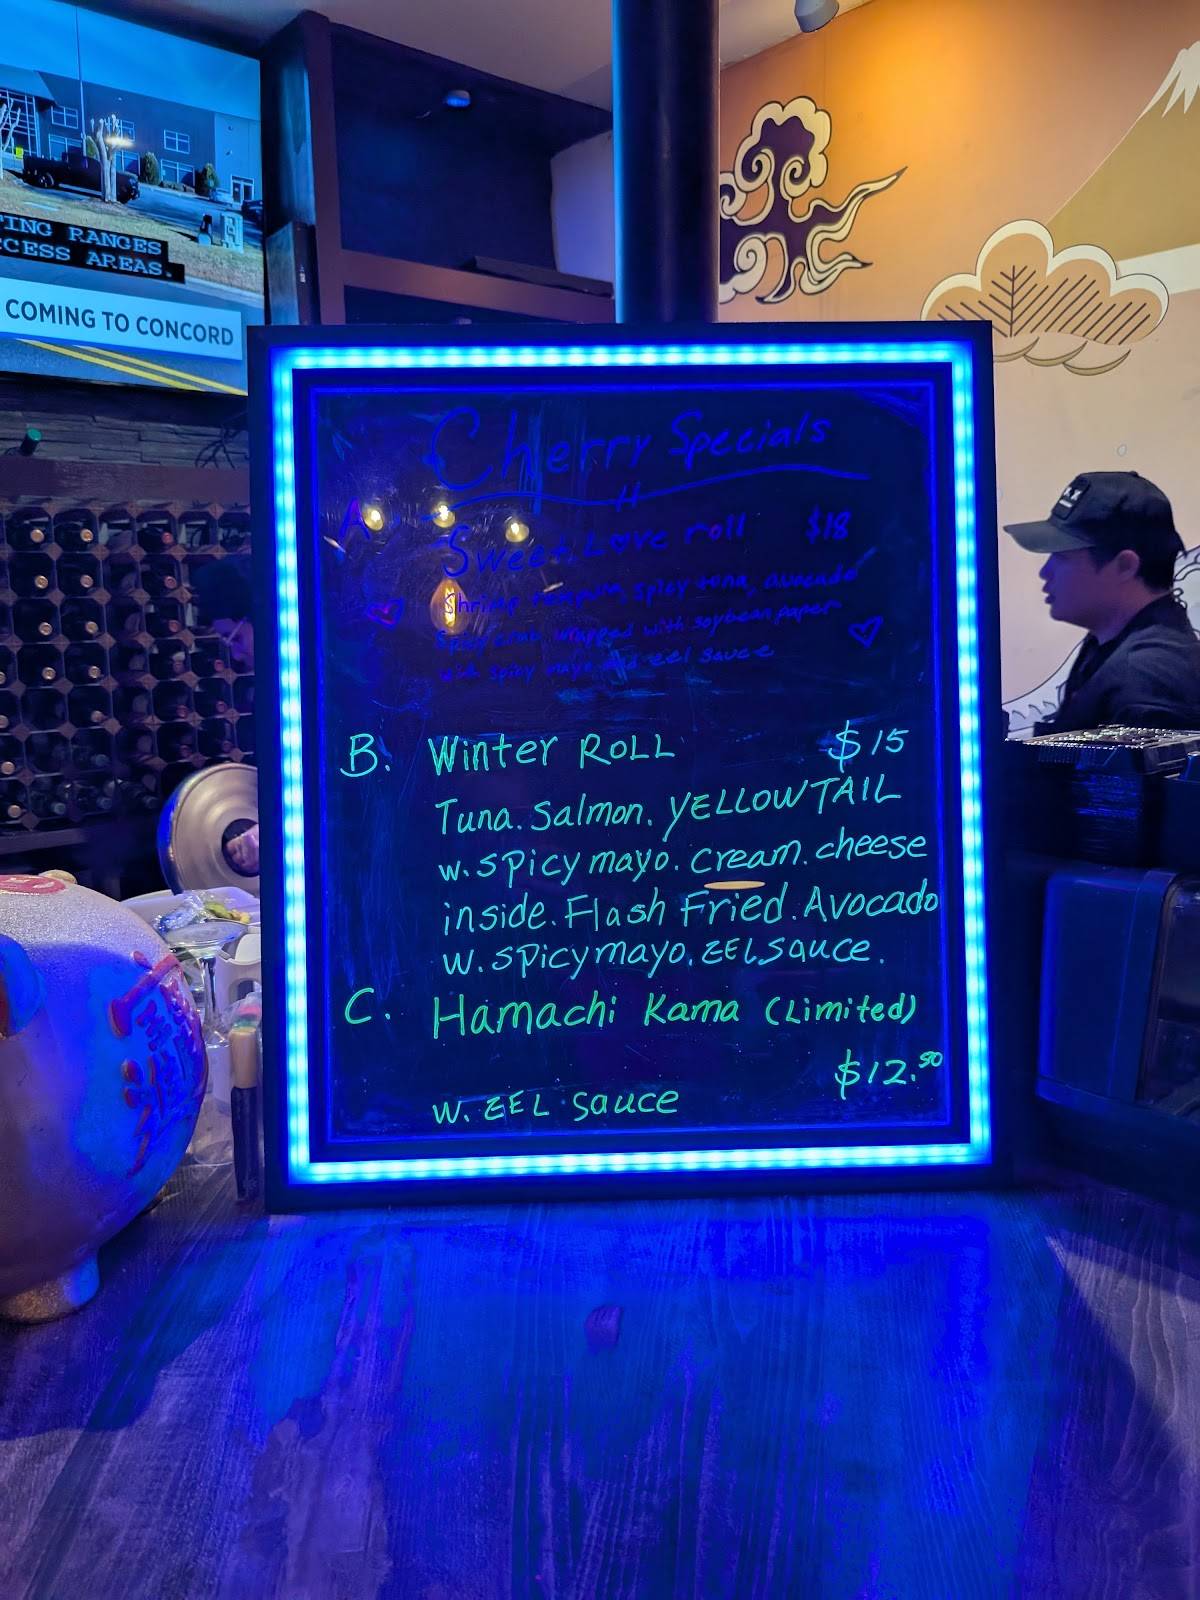 TING RANGES
CCESS AREAS.
COMING TO CONCORD
Cherry Specials
A.
Sweet Love roll $18
Shrimp tempura, spicy tuna, avocado
Spicy crab wrapped with soybean paper
with spicy mayo and eel sauce
B. Winter ROLL $15
Tuna. Salmon. YELLOWTAIL
w. spicy mayo. cream. cheese
inside. Flash Fried. Avocado
w. spicy mayo. EEL sauce.
C. Hamachi Kama (Limited)
$12.50
w. EEL sauce